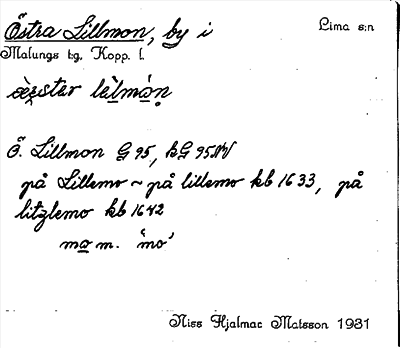 Östra Lillmon, by i Lima s:n
Malungs tg, Kopp. l.
Ö. Lillmon G 95, kG 95 NV
på Lillemo ~ på lillemo kb 1633, på
litzlemo kb 1642
mo m. 'mo'
Niss Hjalmar Matsson 1931